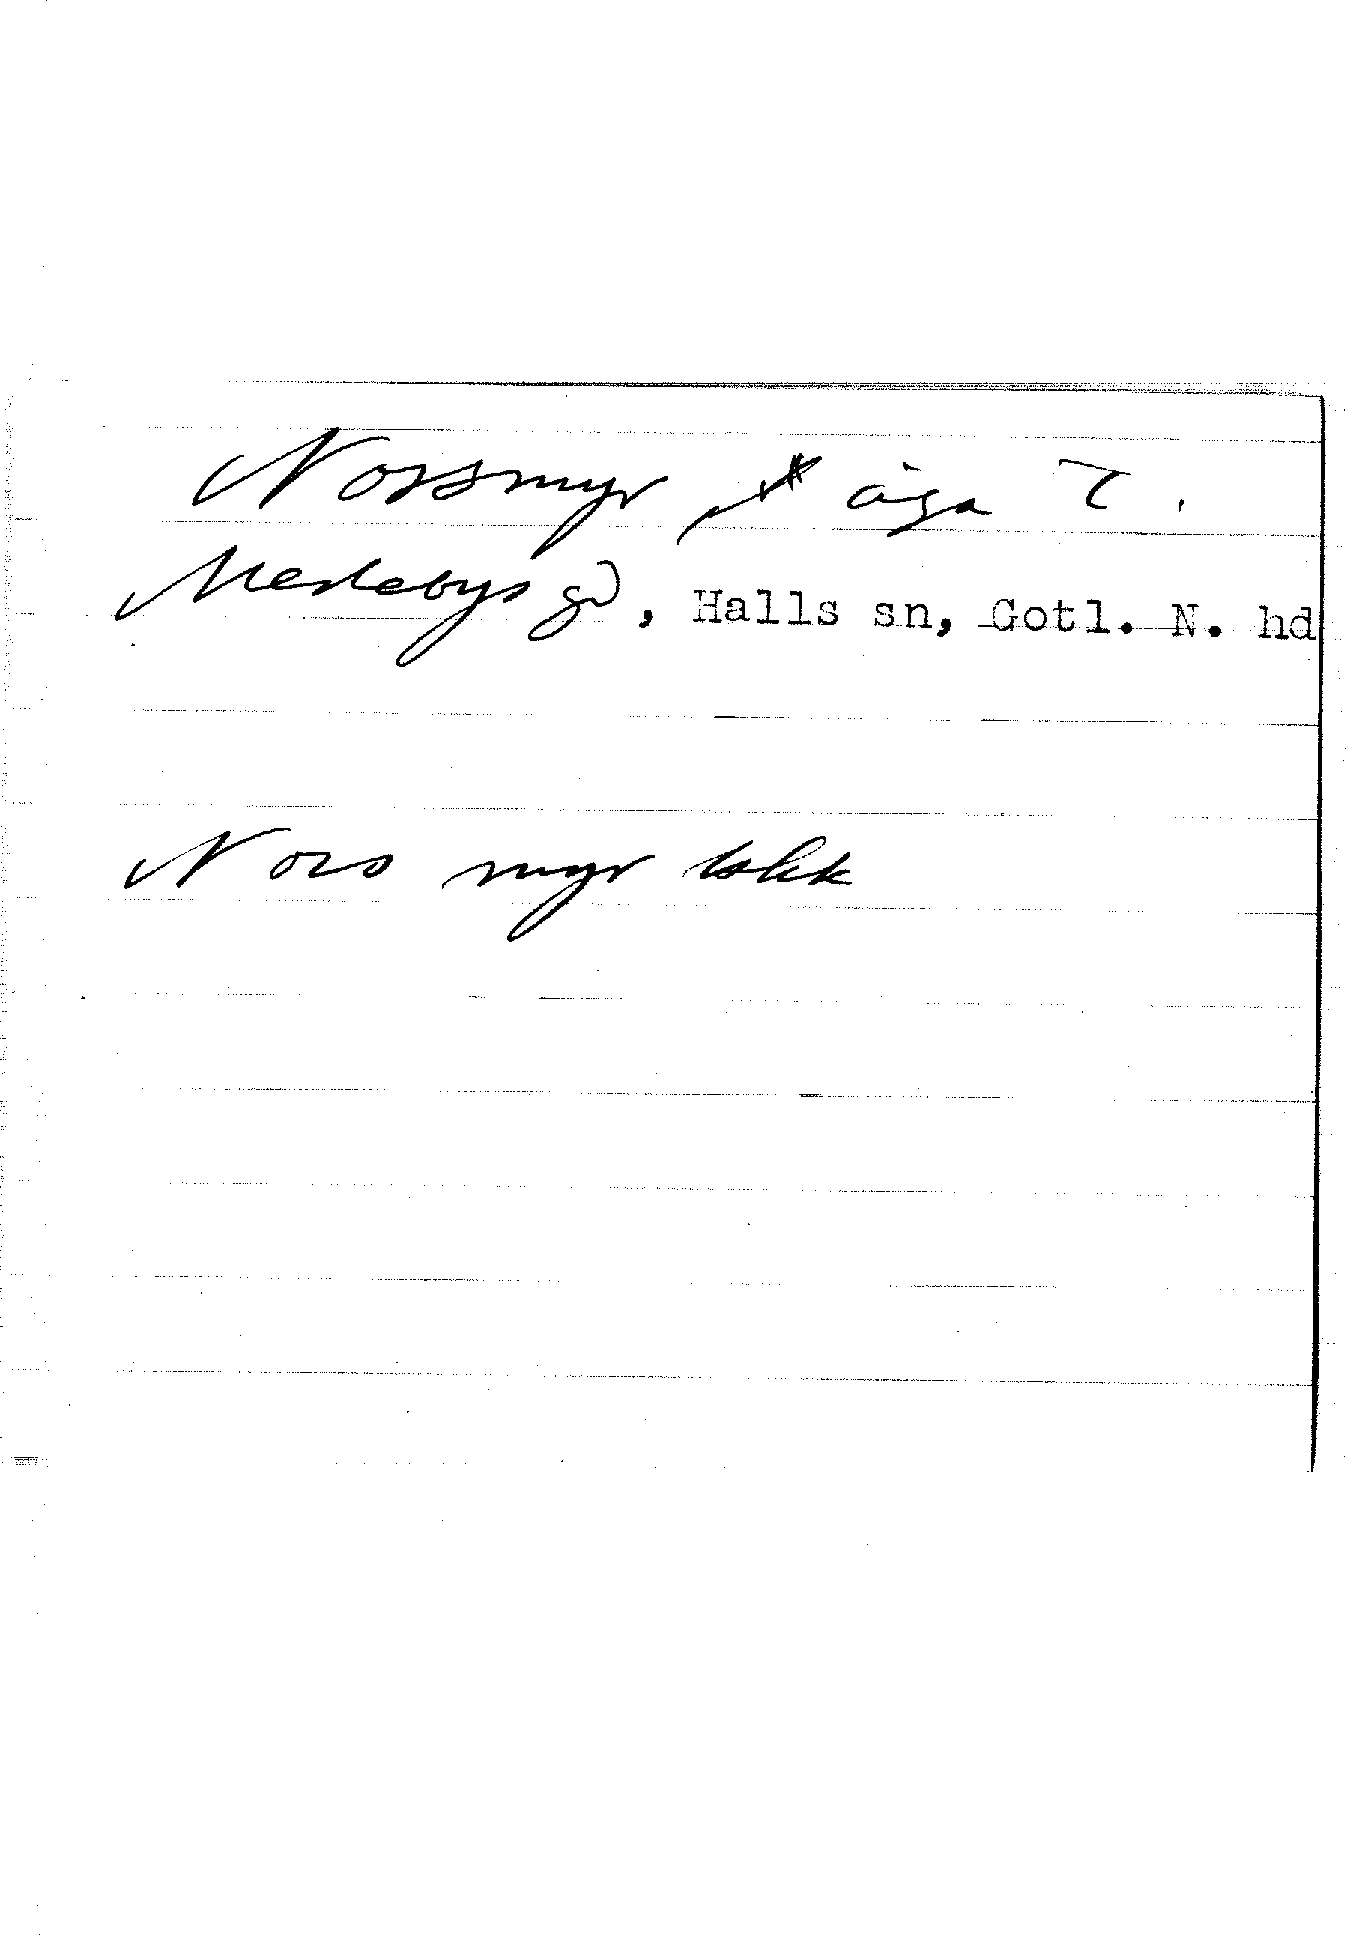 Norsmyr åga T.
Medebys gd, Halls sn, Gotl. N. hd
Nors myr lskk